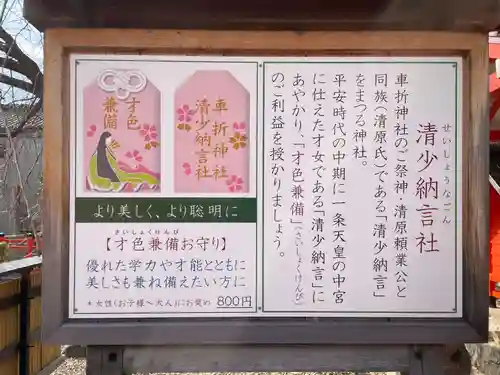 清少納言社
せいしょうなごん
車折神社のご祭神・清原頼業公と
同族（清原氏）である「清少納言」
をまつる神社。
平安時代の中期に一条天皇の中宮
に仕えた才女である「清少納言」に
あやかり、「才色兼備」（さいしょくけんび）
のご利益を授かりましょう。
車折神社
清少納言社
才色
兼備
より美しく、より聡明に
さいしょくけんび
【才色兼備お守り】
優れた学力や才能とともに
美しさも兼ね備えたい方に
＊女性（お子様～大人）にお薦め 800円